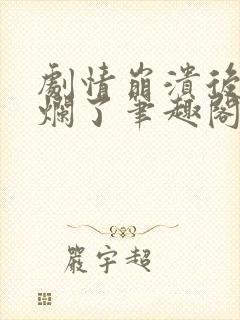 劇情崩潰後
爛了筆趣閣
嚴宇超